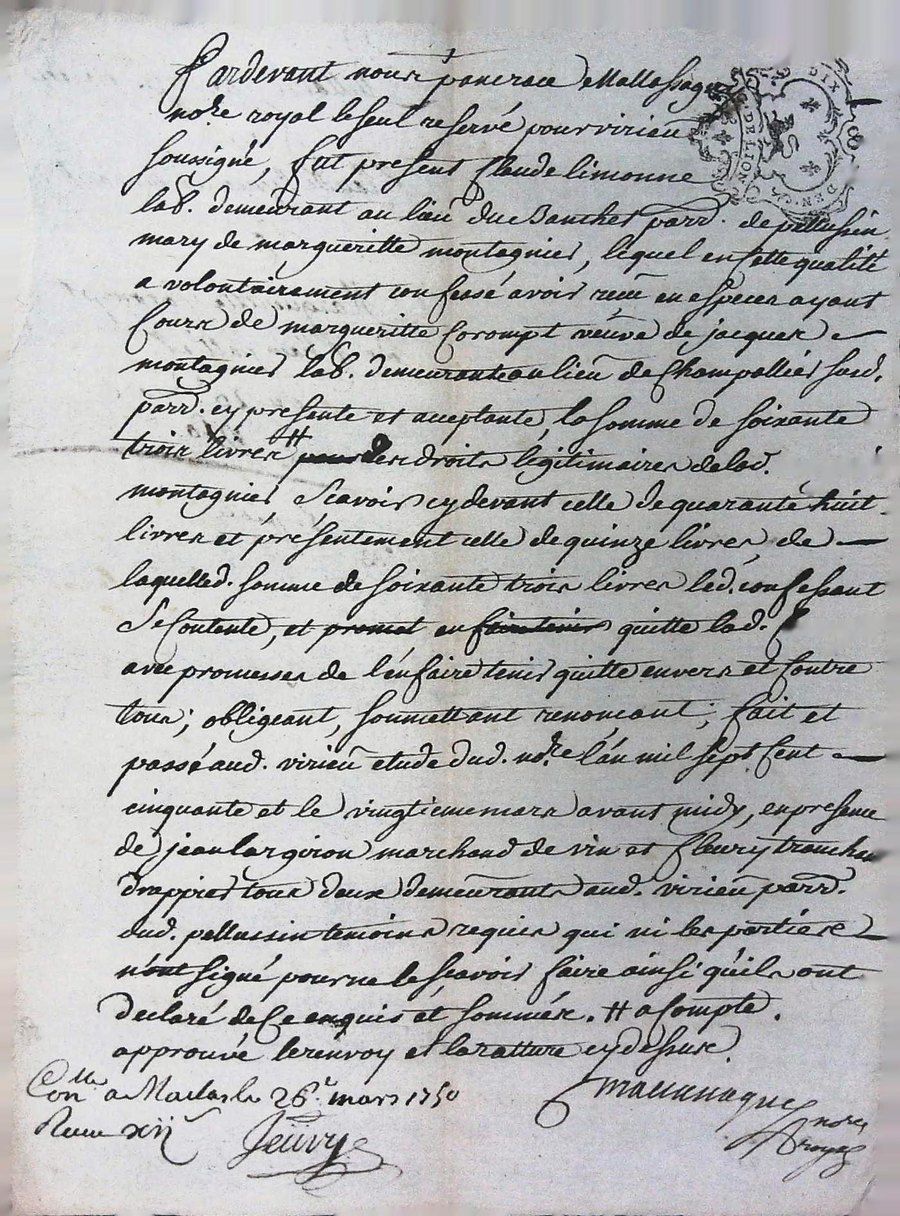 Pardevant nous pancrace Mallassagne
no.re royal le seul reservé pour virieu
soussigné, fut present Claude limonne
lab. demeurant au lieu du Banchet parr. de pellussin
mary de margueritte montagnier, lequel en cette qualité
a volontairement confessé avoir receu en especes ayant
cours de margueritte Corompt veuve de jacques
montagnier lab. demeurante au lieu de Champaillier susd.
parr. cy presente et acceptante, la somme de soixante
trois livres # des droits légitimaires de lad.
montagnier, Scavoir cy devant celle de quarante huit
livres et présentement celle de quinze livres, de
laquelle d. somme de soixante trois livres led. confessant
Se Contente, et promet en quitte lad.
avec promesses de l'en faire tenir quitte envers et contre
tous; obligeant, soumettant renoncant; fait et
passé aud. virieu etude dud. no.re l'an mil sept cent
cinquante et le vingtieme mars avant midy, en presence
de jean largiron marchand de vin et fleury
drappier tous deux demeurants aud. virieu parr.
dud. pellussin temoins requis qui ni les parties
n'ont signé pour ne le scavoir faire ainsi qu'ils ont
declaré de ce enquis et sommés. # a Compte.
approuvé le renvoy et la ratture cy dessus.
Con.lle a Maclas le 26.e mars 1750
Receu xij s
no.re
royal
DIX
DEN.
G. DE LION